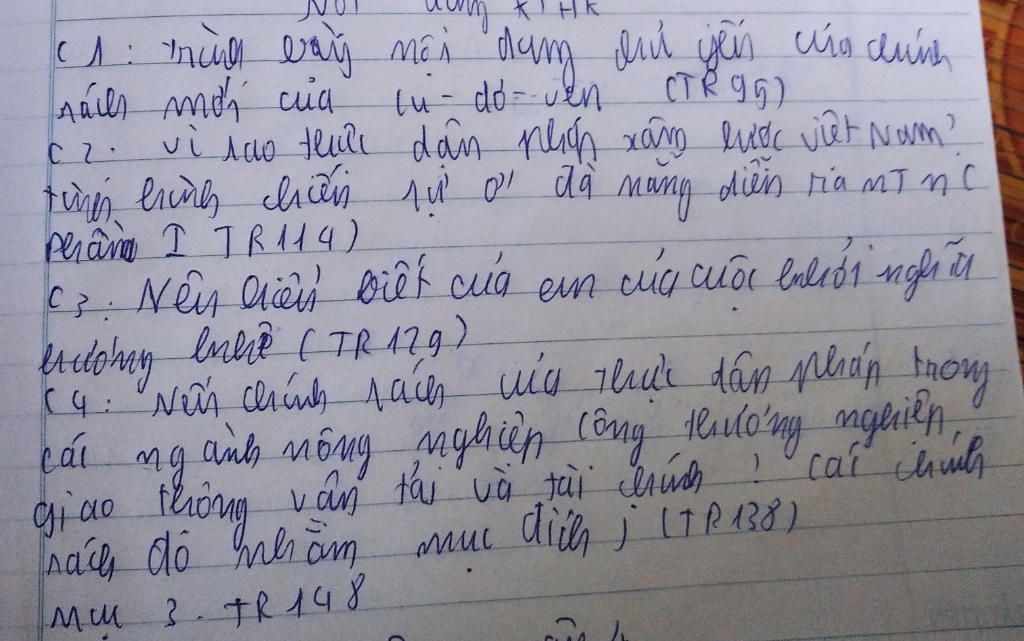 Nội dung KTHK
C1: Trình bày nội dung chủ yếu của chính
sách mới của Ru-dơ-ven (TR95)
C2. Vì sao thực dân Pháp xâm lược Việt Nam?
tình hình chiến sự ở Đà Nẵng diễn ra NTN (
phần I TR114)
C3: Nêu hiểu biết của em của cuộc khởi nghĩa
Hương Khê (TR129)
C4: Nêu chính sách của thực dân Pháp trong
các ngành nông nghiệp công thương nghiệp,
giao thông vận tải và tài chính? Các chính
sách đó nhằm mục đích j (TR138)
Mục 3. TR148